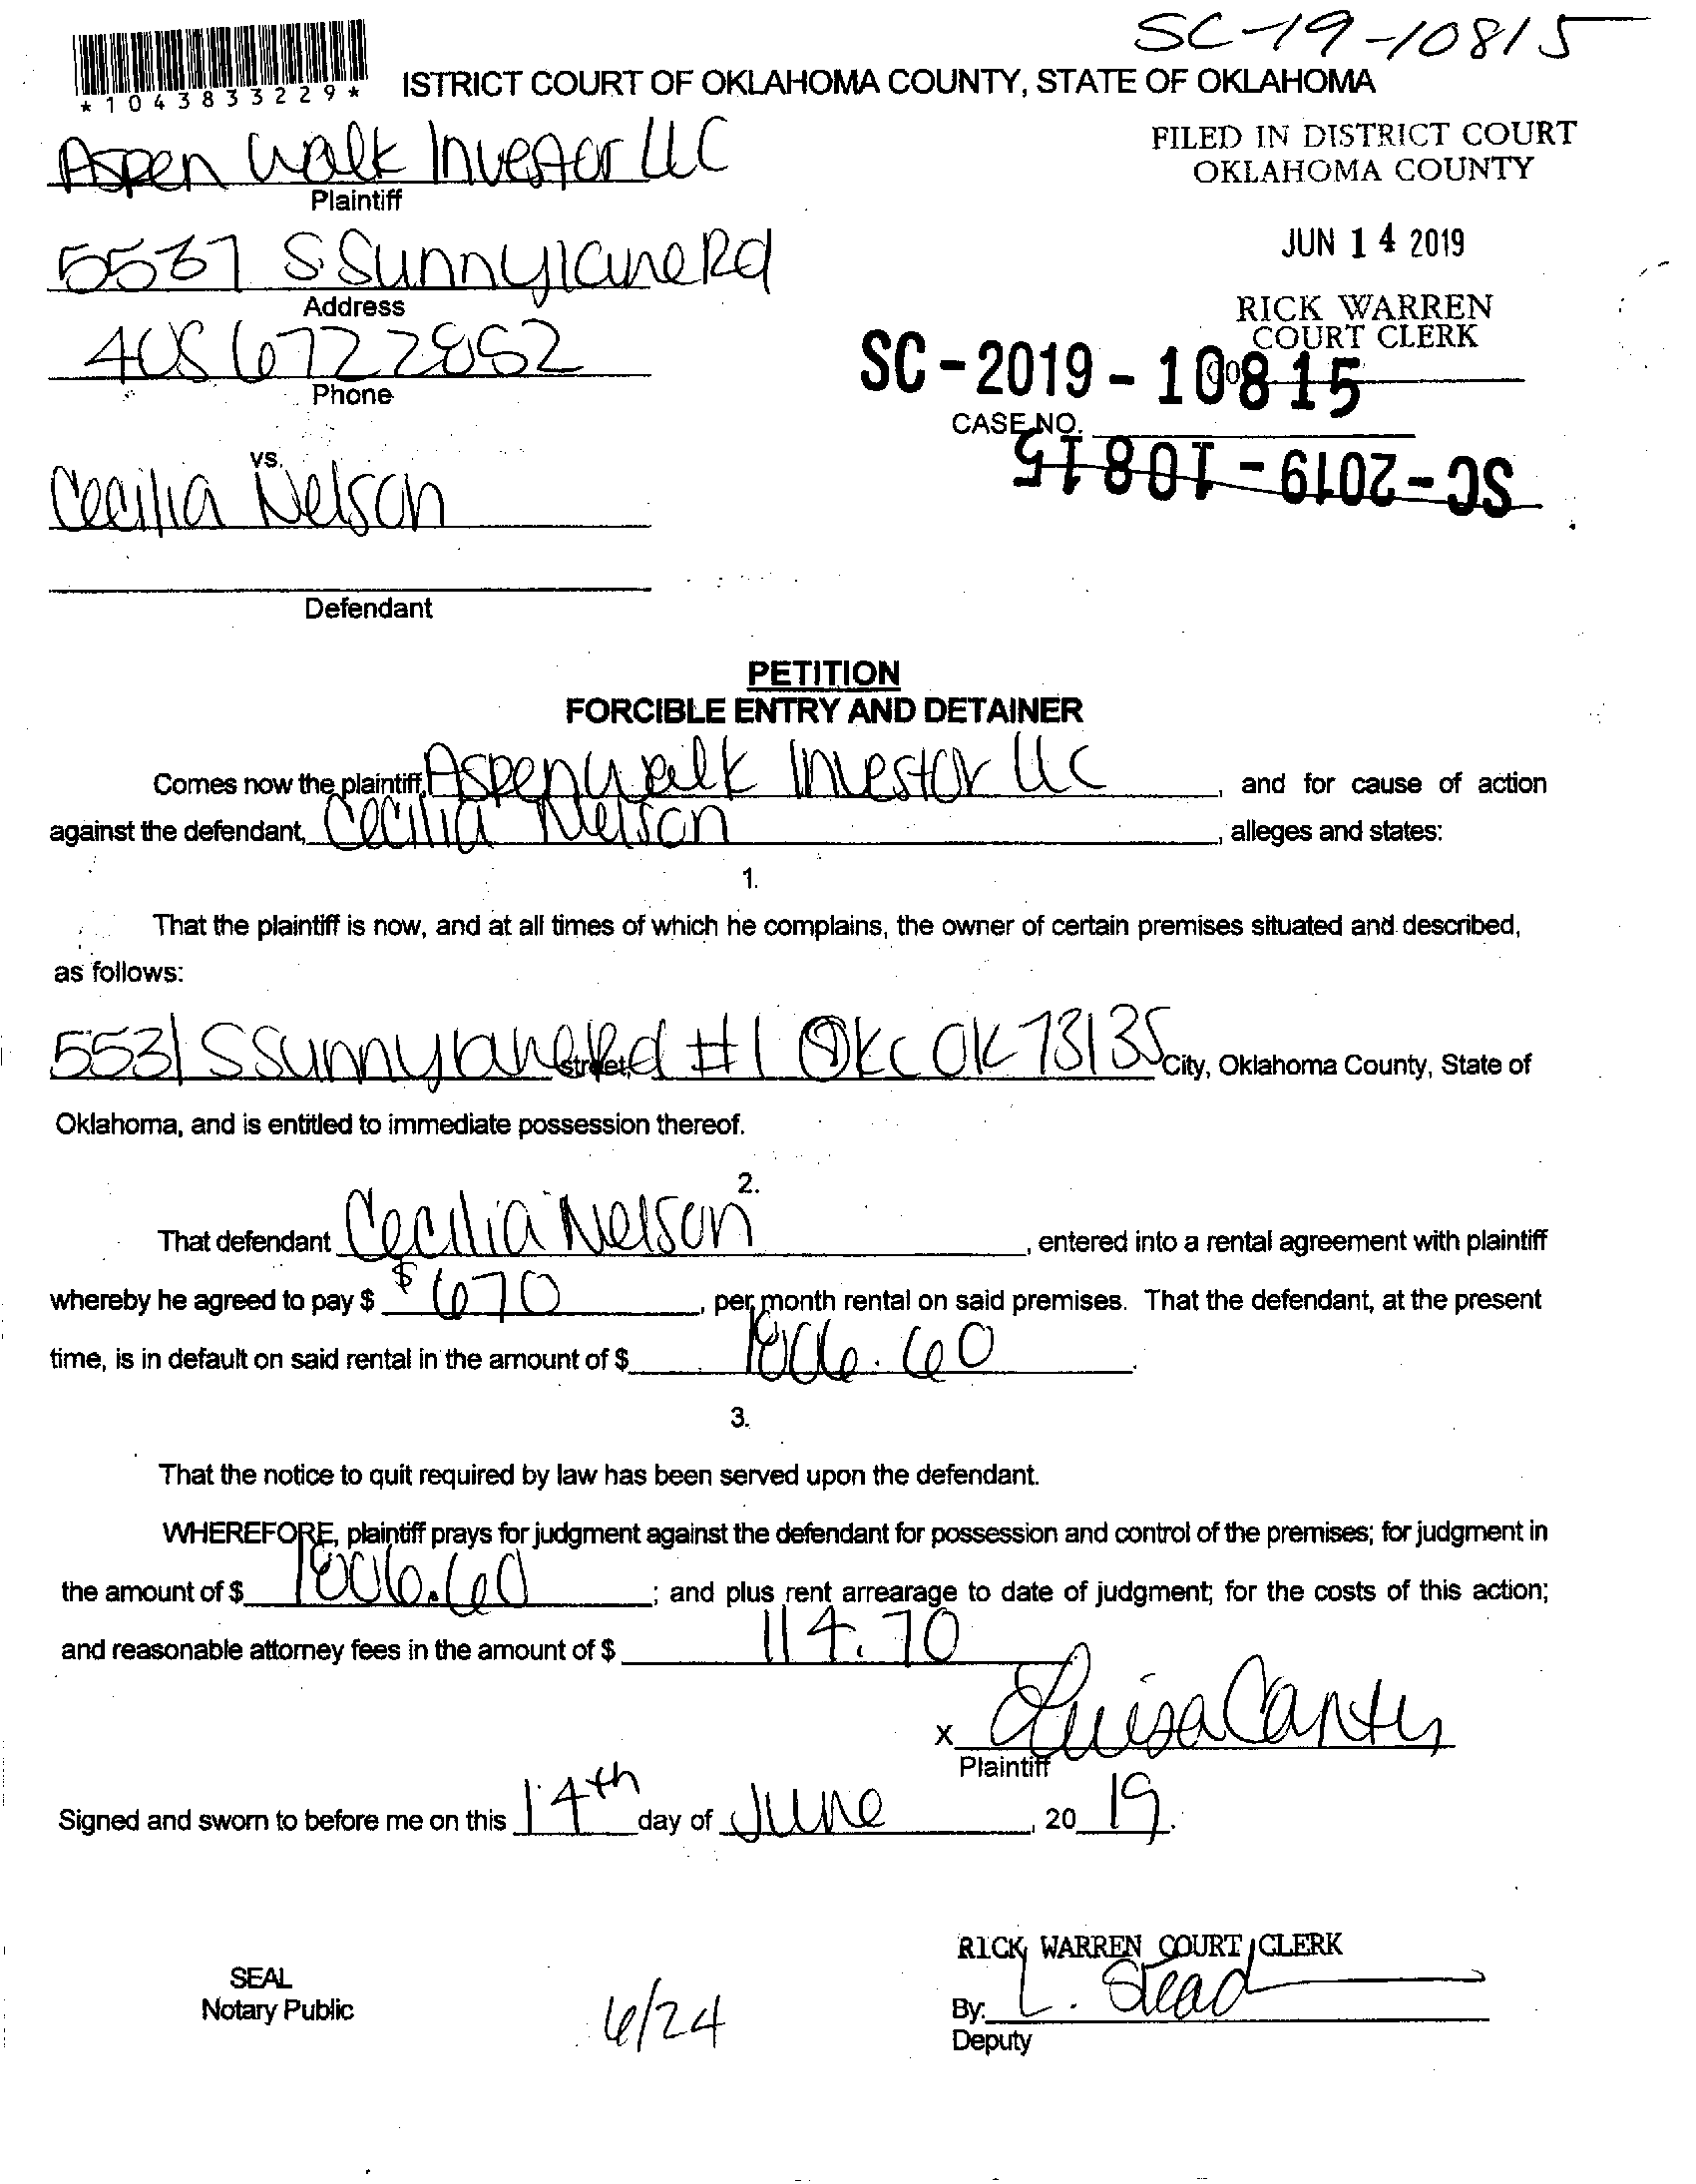 SC-19-10815
*1043833229*
ISTRICT COURT OF OKLAHOMA COUNTY, STATE OF OKLAHOMA
Aspen Walk Investor LLC
Plaintiff
FILED IN DISTRICT COURT
OKLAHOMA COUNTY
JUN 14 2019
5537 S Sunnylane Rd
Address
RICK WARREN
COURT CLERK
405 672 2852
Phone
SC-2019-10815
CASE NO.
SC-2019-10815
vs.
Cecilia Nelson
Defendant
PETITION
FORCIBLE ENTRY AND DETAINER
Comes now the plaintiff, Aspen Walk Investor LLC, and for cause of action
against the defendant, Cecilia Nelson, alleges and states:
1.
That the plaintiff is now, and at all times of which he complains, the owner of certain premises situated and described,
as follows:
5531 S Sunnylane Rd #1 OKC OK 73135 street, City, Oklahoma County, State of
Oklahoma, and is entitled to immediate possession thereof.
2.
That defendant Cecilia Nelson, entered into a rental agreement with plaintiff
whereby he agreed to pay $ $670, per month rental on said premises. That the defendant, at the present
time, is in default on said rental in the amount of $ .
3.
That the notice to quit required by law has been served upon the defendant.
WHEREFORE, plaintiff prays for judgment against the defendant for possession and control of the premises; for judgment in
the amount of $ 1806.60; and plus rent arrearage to date of judgment; for the costs of this action;
and reasonable attorney fees in the amount of $ 114.70
x Luisa
Plaintiff
Signed and sworn to before me on this 14th day of June, 2019.
RICK WARREN COURT CLERK
SEAL
Notary Public
6/24
By: L. Stead
Deputy